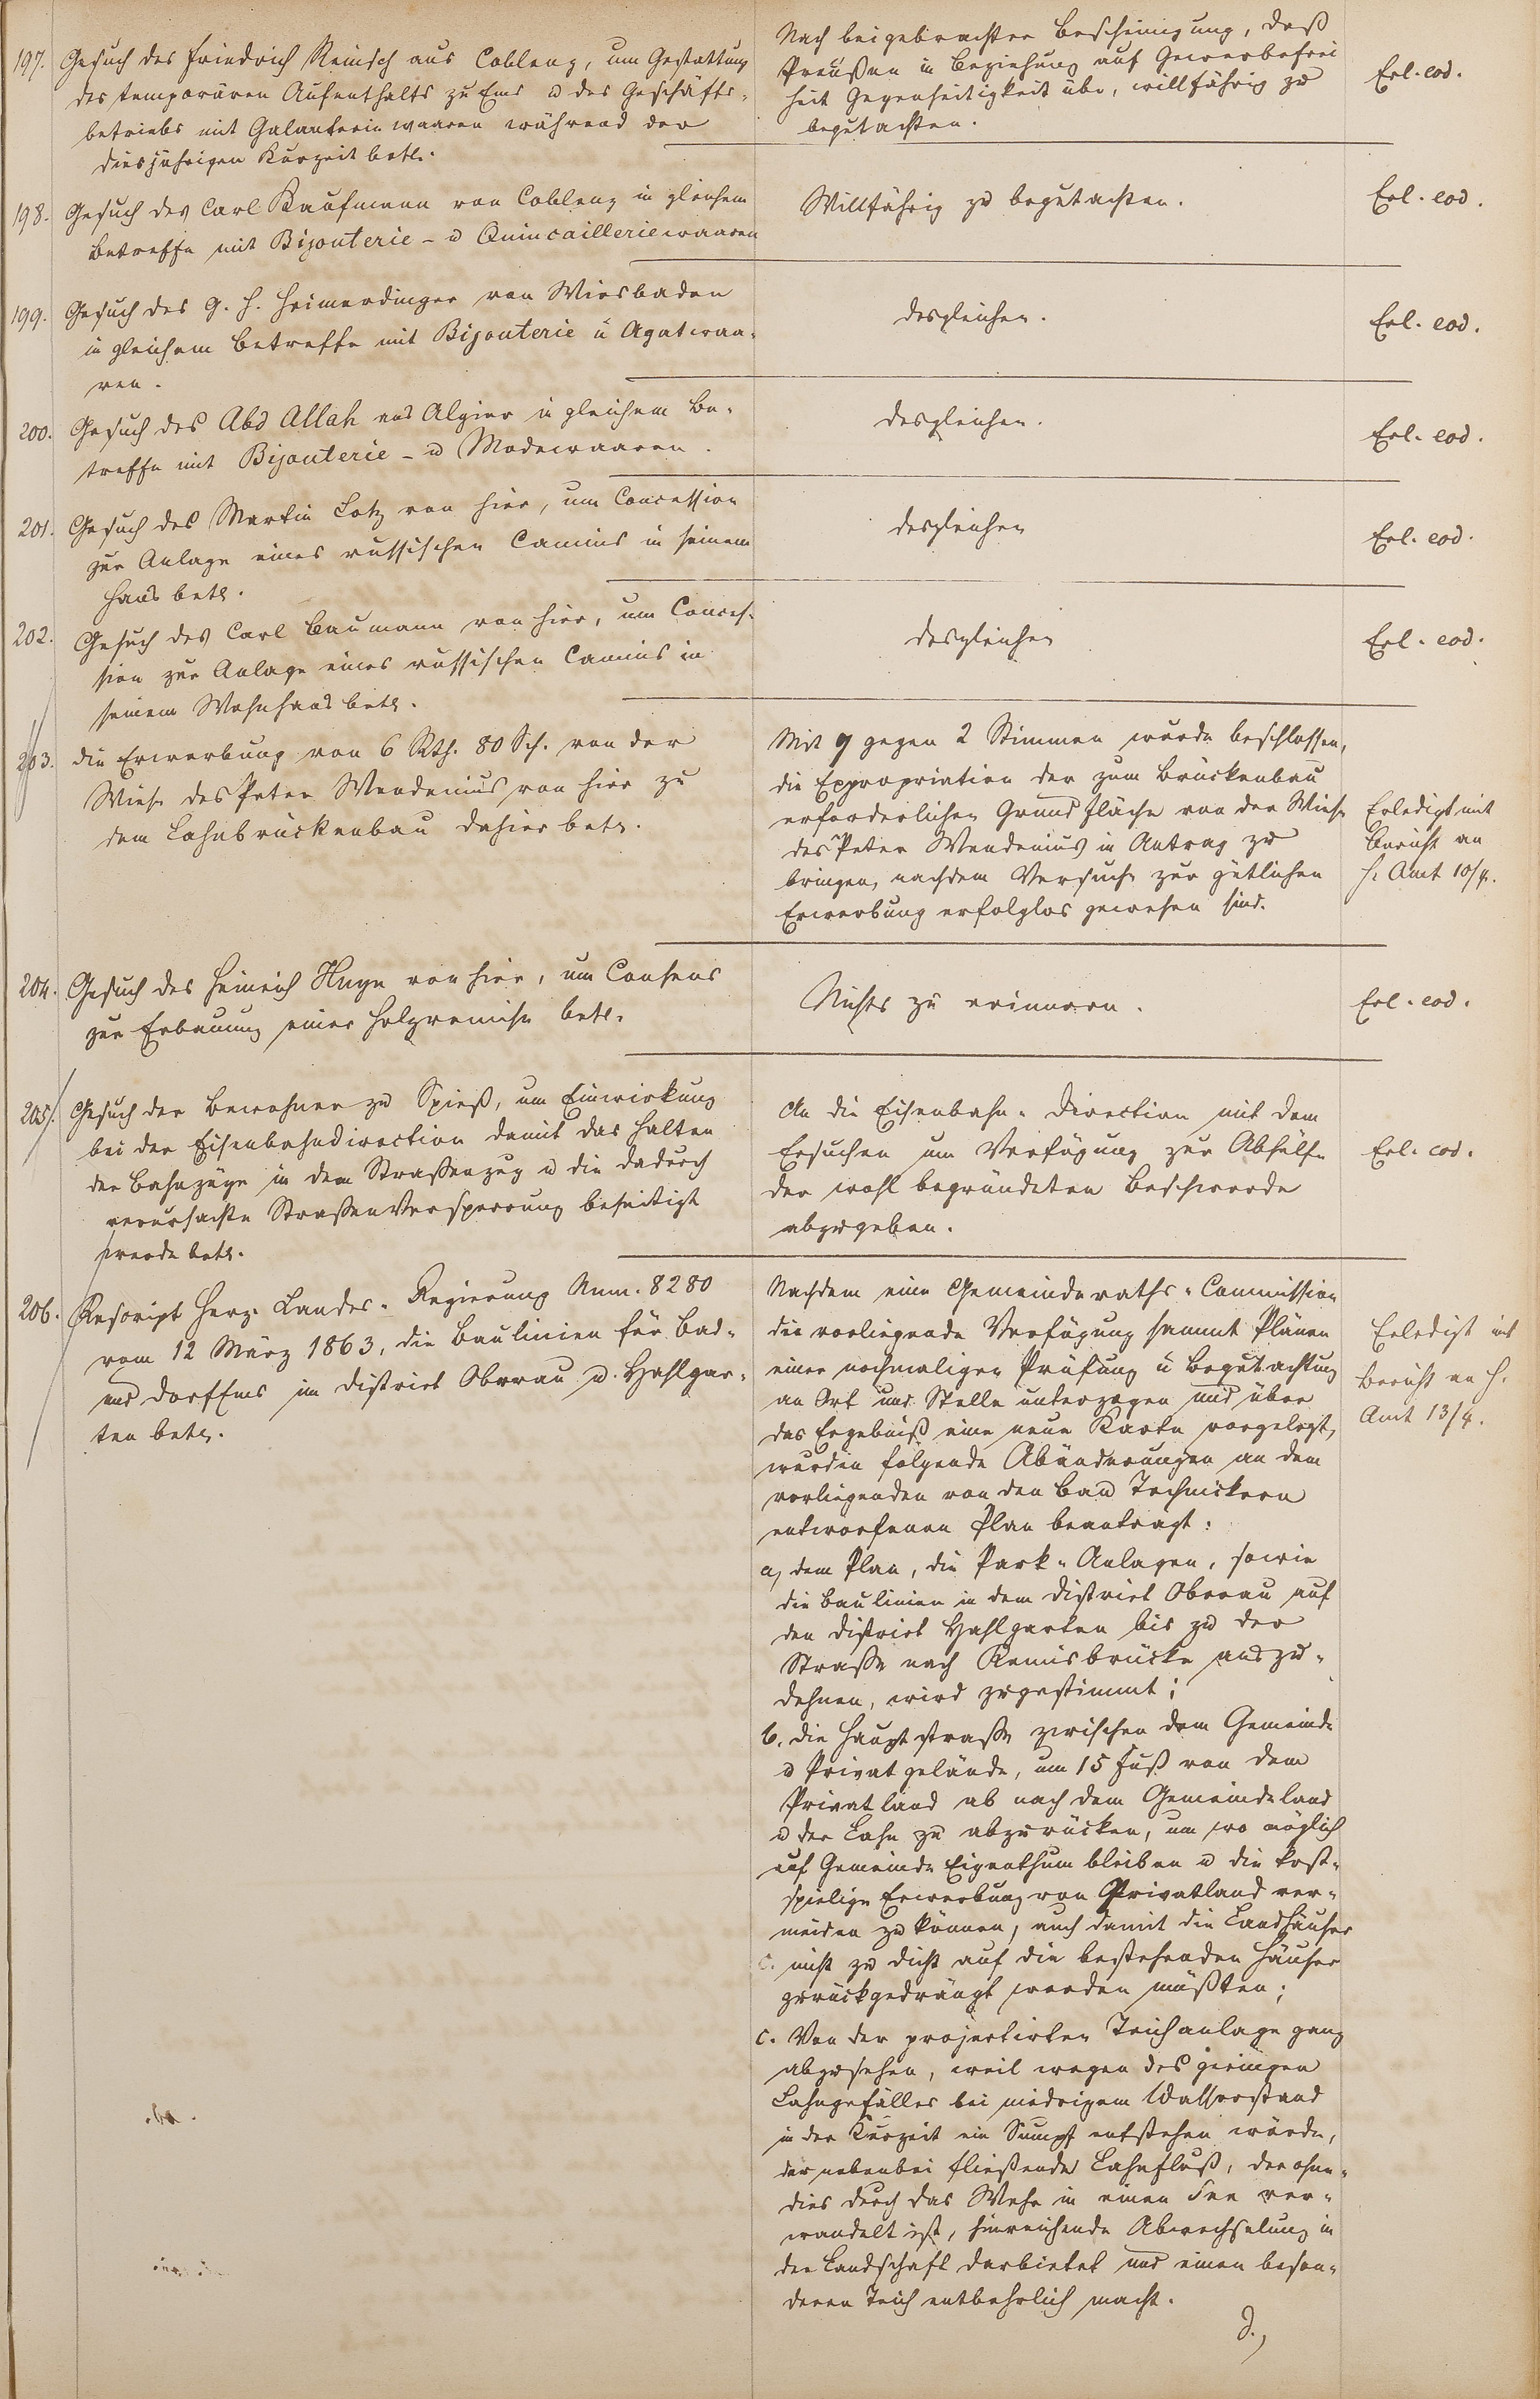 197. Gesuch des Friedrich Reinsch aus Coblenz, um Gestattung
des temporären Aufenthalts zu Ems u des Geschäfts-
betriebs mit Galanteriewaaren während der
diesjährigen Kurzeit betr.
Nach beigebrachter Bescheinigung, daß
Preußen in Beziehung auf Gewerbefrei
heit Gegenseitigkeit übe, willfährig zu
begutachten.
Erl. eod.
198. Gesuch des Carl Kaufmann von Coblenz in gleichem
Betreffe mit Bijouterie- u Quincailleriewaaren
Willfährig zu begutachten.
Erl. eod.
199. Gesuch des G. H. Heimerdinger von Wiesbaden
in gleichem Betreffe mit Bijouterie u Agatwaa-
ren.
desgleichen.
Erl. eod.
200. Gesuch des Abd Allah aus Algier in gleichem Be-
treffe mit Bijouterie- u Modewaaren.
desgleichen.
Erl. eod.
201. Gesuch des Martin Lotz von hier, um Concession
zur Anlage eines russischen Camins in seinem
Haus betr.
desgleichen
Erl. eod.
202. Gesuch des Carl Baumann von hier, um Conces-
sion zur Anlage eines russischen Camins in
seinem Wohnhaus betr.
desgleichen
Erl. eod.
203. die Erwerbung von 6 Rth. 80 Sch. von der
Wiese des Peter Wendenius von hier zu
dem Lahnbrückenbau dahier betr.
Mit 9 gegen 2 Stimmen wurde beschlossen,
die Expropriation der zum Brückenbau
erforderlichen Grundfläche von der Wiese
des Peter Wendenius in Antrag zu
bringen, nachdem Versuche zur gütlichen
Erwerbung erfolglos gewesen sind.
Erledigt mit
Bericht an
H. Amt 10/4.
204. Gesuch des Heinrich Huyn von hier, um Consens
zur Erbauung einer Holzremise betr.
Nichts zu erinnern.
Erl. eod.
205. Gesuch der Bewohner zu Spieß, um Einwirkung
bei der Eisenbahndirection damit das Halten
der Bahnzüge in dem Straßenzug u die dadurch
verursachte Straßenversperrung beseitigt
werde betr.
An die Eisenbahn-Direction mit dem
Ersuchen um Verfügung zur Abhülfe
der wohl begründeten Beschwerde
abzugeben.
Erl. eod.
206. Rescript Herz. Landes-Regierung Num. 8280
vom 12 März 1863, die Baulinien für Bad-
und Dorf Ems im District Oberau u. Hahlgar-
ten betr.
Nachdem eine Gemeinderaths-Commission
die vorliegende Verfügung sammt Plänen
einer nochmaligen Prüfung u Begutachtung
an Ort und Stelle unterzogen und über
das Ergebniß eine neue Karte vorgelegt,
wurden folgende Abänderungen an dem
vorliegenden von den Bau Technickern
entworfenen Plan beantragt:
a, dem Plan, die Park-Anlagen, sowie
die Baulinien in dem District Oberau auf
den District Hahlgarten bis zu der
Straße nach Remisbrücke auszu-
dehnen, wird zugestimmt;
b. die Hauptstraße zwischen dem Gemeinde
u Privatgelände, um 15 Fuß von dem
Privatland ab nach dem Gemeindeland
u der Lahn zu abzurücken, um wo möglich
auf Gemeinde Eigenthum bleiben u die kost-
spielige Erwerbung von Privatland ver-
meiden zu können, auch damit die Landhäuser
c. nicht zu dicht auf die bestehenden Häuser
zurückgedrängt werden müßten;
c. Von der projectirten Teichanlage ganz
abzusehen, weil wegen des geringen
Lahngefälles bei niedrigem Wasserstand
in der Kurzeit ein Sumpf entstehen würde,
der nebenbei fließende Lahnfluß, der ohne-
dies durch das Wehr in einen See ver-
wandelt ist, hinreichende Abwechselung in
der Landschaft darbietet und einen beson-
deren Teich entbehrlich macht.
d.,
Erledigt mit
Bericht an H.
Amt 13/4.